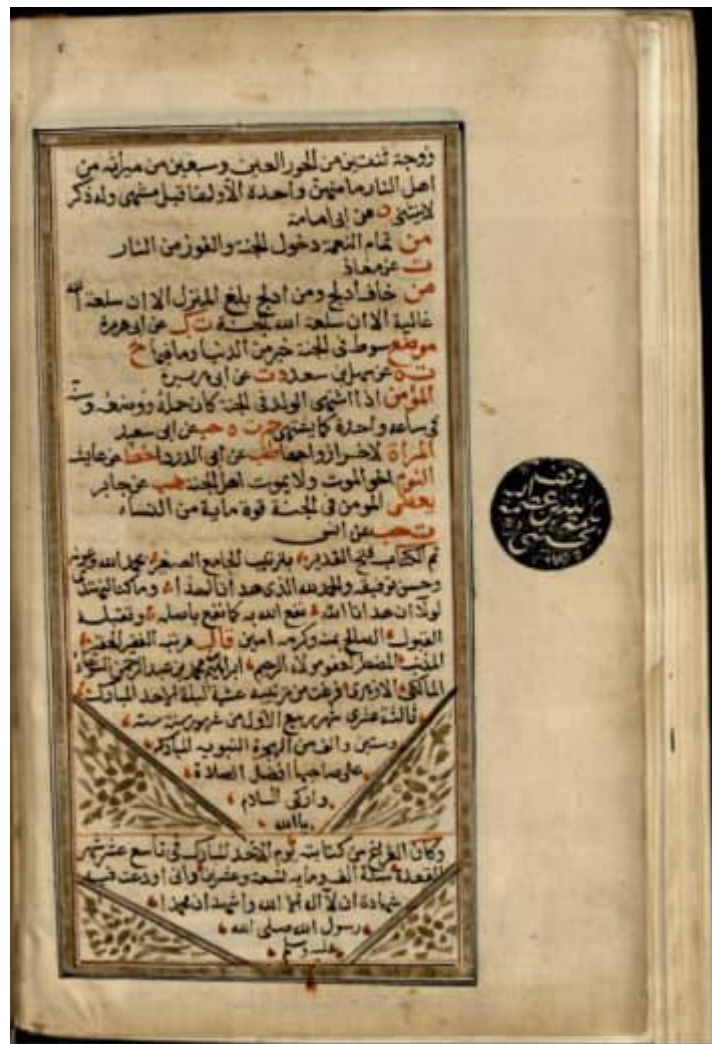 زوجة ثنتين من الحور العين وسبعين من ميراثه من
اهل النار ما منهن واحدة الا ولها قبل شهى وله ذكر
لا ينثنى ه عن ابى امامة
من تمام النعمة دخول الجنة والفوز من النار
ت عن معاذ
من خاف ادلج ومن ادلج بلغ المنزل الا ان سلعة الله
غالية الا ان سلعة الله الجنة ت ك عن ابى هريرة
موضع سوط فى الجنة خير من الدنيا وما فيها خ
ت ه عن سهل بن سعد ت عن ابى هريرة
المؤمن اذا اشتهى الولد فى الجنة كان حمله ووضعه وسنه
فى ساعة واحدة كما يشتهى حم ت ه حب عن ابى سعيد
المرأة لاخر ازواجها طب عن ابى الدردا خط عن عايشة
النوم اخو الموت ولا يموت اهل الجنة هب عن جابر
يعطى المومن فى الجنة قوة ماية من النساء
ت حب عن انس
تم الكتاب فتح القدير بترتيب الجامع الصغير بحمد الله وعونه
وحسن توفيقه والحمد لله الذى هدانا لهذا وما كنا لنهتدى
لولا ان هدانا الله نفع الله به كما نفع باصله وتقبله
القبول الصالح بمنه وكرمه امين قال مرتبه الفقير الحقير
المذنب المضطر لعفو مولاه الرحيم ابراهيم محمد بن عبد الرحمن
المالكى الازهرى فرغت من ترتيبه عشية ليلة الاحد المبارك
ثالثة عشرى شهر ربيع الاول من شهور سنة ستة
وستين والف من الهجرة النبويه
على صاحبها افضل الصلاة
وازكى السلام
يا الله
وكان الفراغ من كتابته يوم الاحد المبارك فى تاسع عشر شهر
القعدة سنة الف وماية تسعة وعشرين وانى اودعت فيه
شهادة ان لا اله الا الله واشهد ان محمدا
رسول الله صلى الله
عليه وسلم
وقف